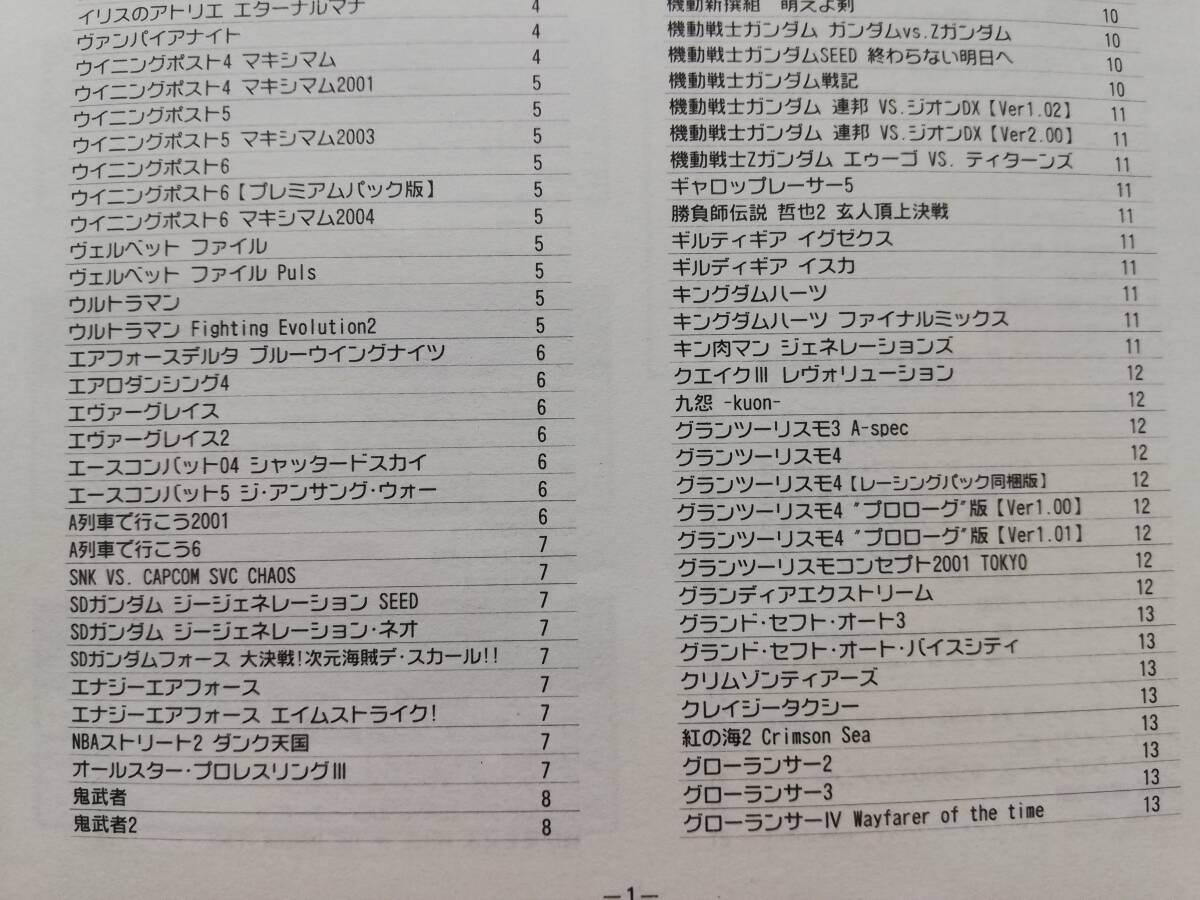 イリスのアトリエ エターナルマナ 4
ヴァンパイアナイト 4
ウイニングポスト4 マキシマム 4
ウイニングポスト4 マキシマム2001 5
ウイニングポスト5 5
ウイニングポスト5 マキシマム2003 5
ウイニングポスト6 5
ウイニングポスト6【プレミアムパック版】 5
ウイニングポスト6 マキシマム2004 5
ヴェルベット ファイル 5
ヴェルベット ファイル Puls 5
ウルトラマン 5
ウルトラマン Fighting Evolution2 5
エアフォースデルタ ブルーウイングナイツ 6
エアロダンシング4 6
エヴァーグレイス 6
エヴァーグレイス2 6
エースコンバット04 シャッタードスカイ 6
エースコンバット5 ジ・アンサング・ウォー 6
A列車で行こう2001 6
A列車で行こう6 7
SNK VS. CAPCOM SVC CHAOS 7
SDガンダム ジージェネレーション SEED 7
SDガンダム ジージェネレーション・ネオ 7
SDガンダムフォース 大決戦!次元海賊デ・スカール!! 7
エナジーエアフォース 7
エナジーエアフォース エイムストライク! 7
NBAストリート2 ダンク天国 7
オールスター・プロレスリングⅢ 7
鬼武者 8
鬼武者2 8
機動新撰組 萌えよ剣 10
機動戦士ガンダム ガンダムvs.Zガンダム 10
機動戦士ガンダムSEED 終わらない明日へ 10
機動戦士ガンダム戦記 10
機動戦士ガンダム 連邦 VS.ジオンDX【Ver1.02】 11
機動戦士ガンダム 連邦 VS.ジオンDX【Ver2.00】 11
機動戦士Zガンダム エゥーゴ VS. ティターンズ 11
ギャロップレーサー5 11
勝負師伝説 哲也2 玄人頂上決戦 11
ギルティギア イグゼクス 11
ギルディギア イスカ 11
キングダムハーツ 11
キングダムハーツ ファイナルミックス 11
キン肉マン ジェネレーションズ 11
クエイクⅢ レヴォリューション 12
九怨 -kuon- 12
グランツーリスモ3 A-spec 12
グランツーリスモ4 12
グランツーリスモ4【レーシングパック同梱版】 12
グランツーリスモ4 "プロローグ"版【Ver1.00】 12
グランツーリスモ4 "プロローグ"版【Ver1.01】 12
グランツーリスモコンセプト2001 TOKYO 12
グランディアエクストリーム 12
グランド・セフト・オート3 13
グランド・セフト・オート・バイスシティ 13
クリムゾンティアーズ 13
クレイジータクシー 13
紅の海2 Crimson Sea 13
グローランサー2 13
グローランサー3 13
グローランサーⅣ Wayfarer of the time 13
―1―